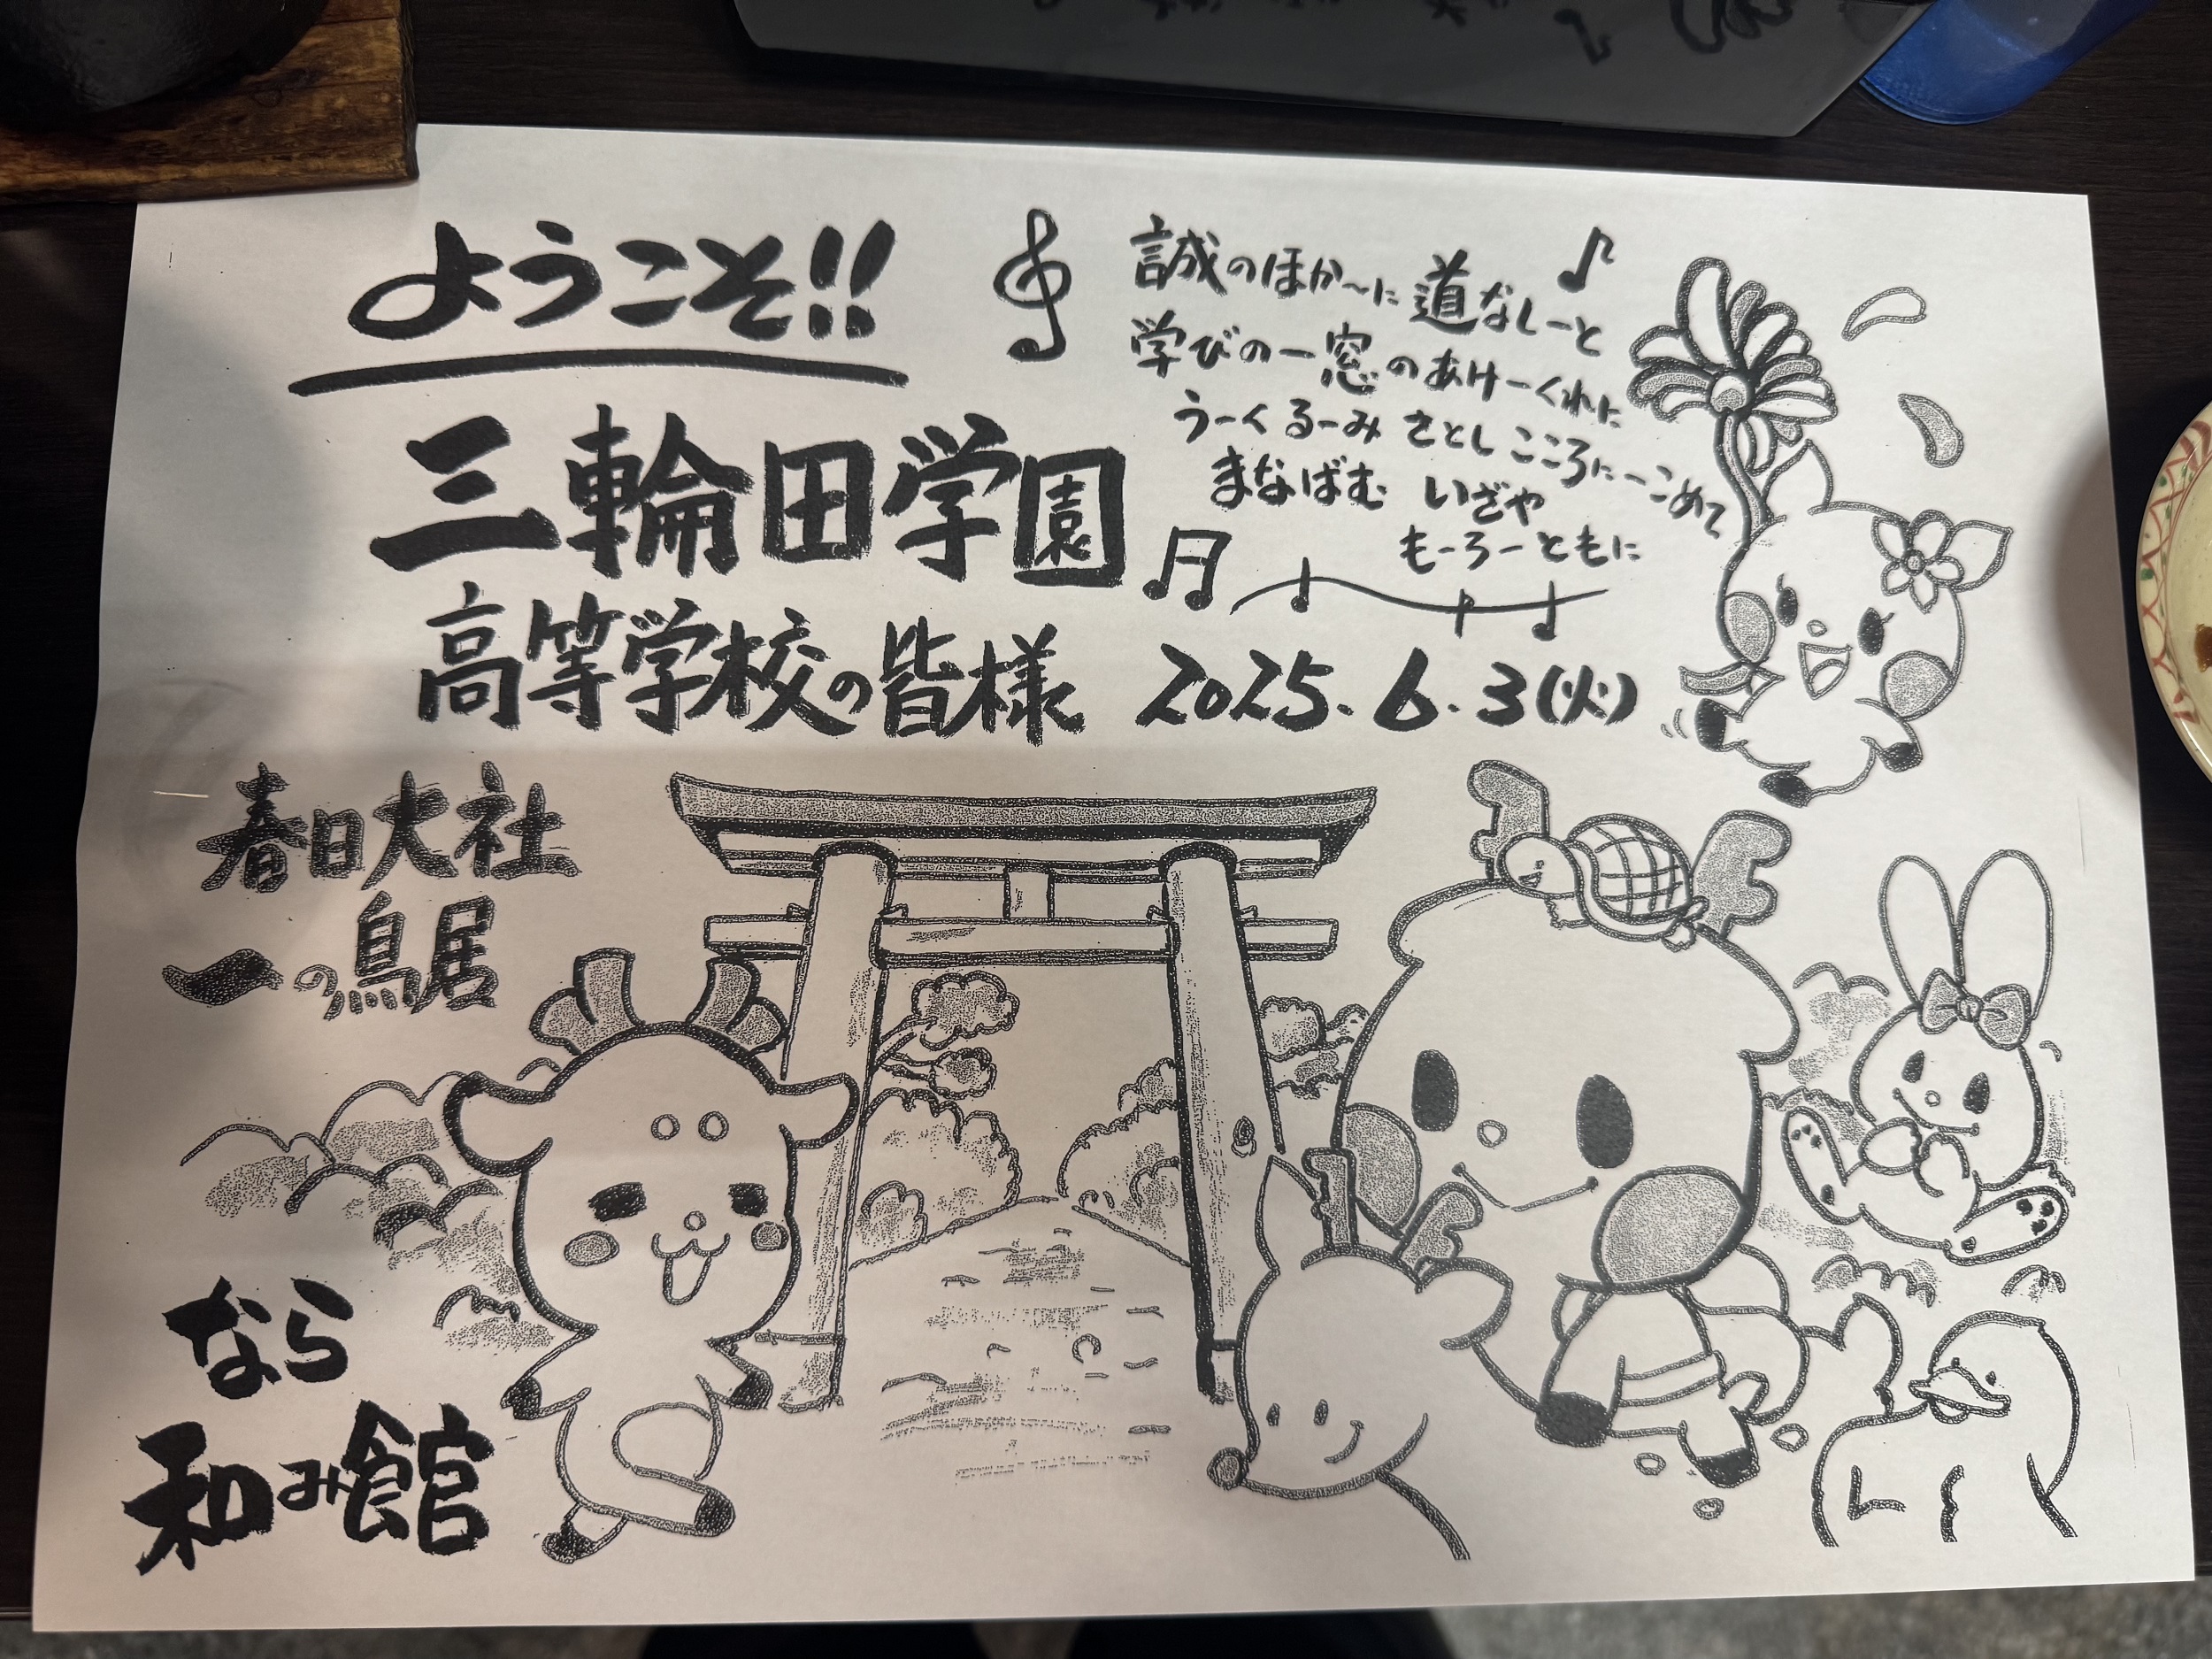 ようこそ!!
三輪田学園
高等学校の皆様
2025.6.3(火)
誠のほか〜に道なしーと
学びの一窓のあけーくれに
うーくるーみ さとし こころにーこめて
まなばむ いざや
もーろーともに
春日大社
一の鳥居
なら
和み館